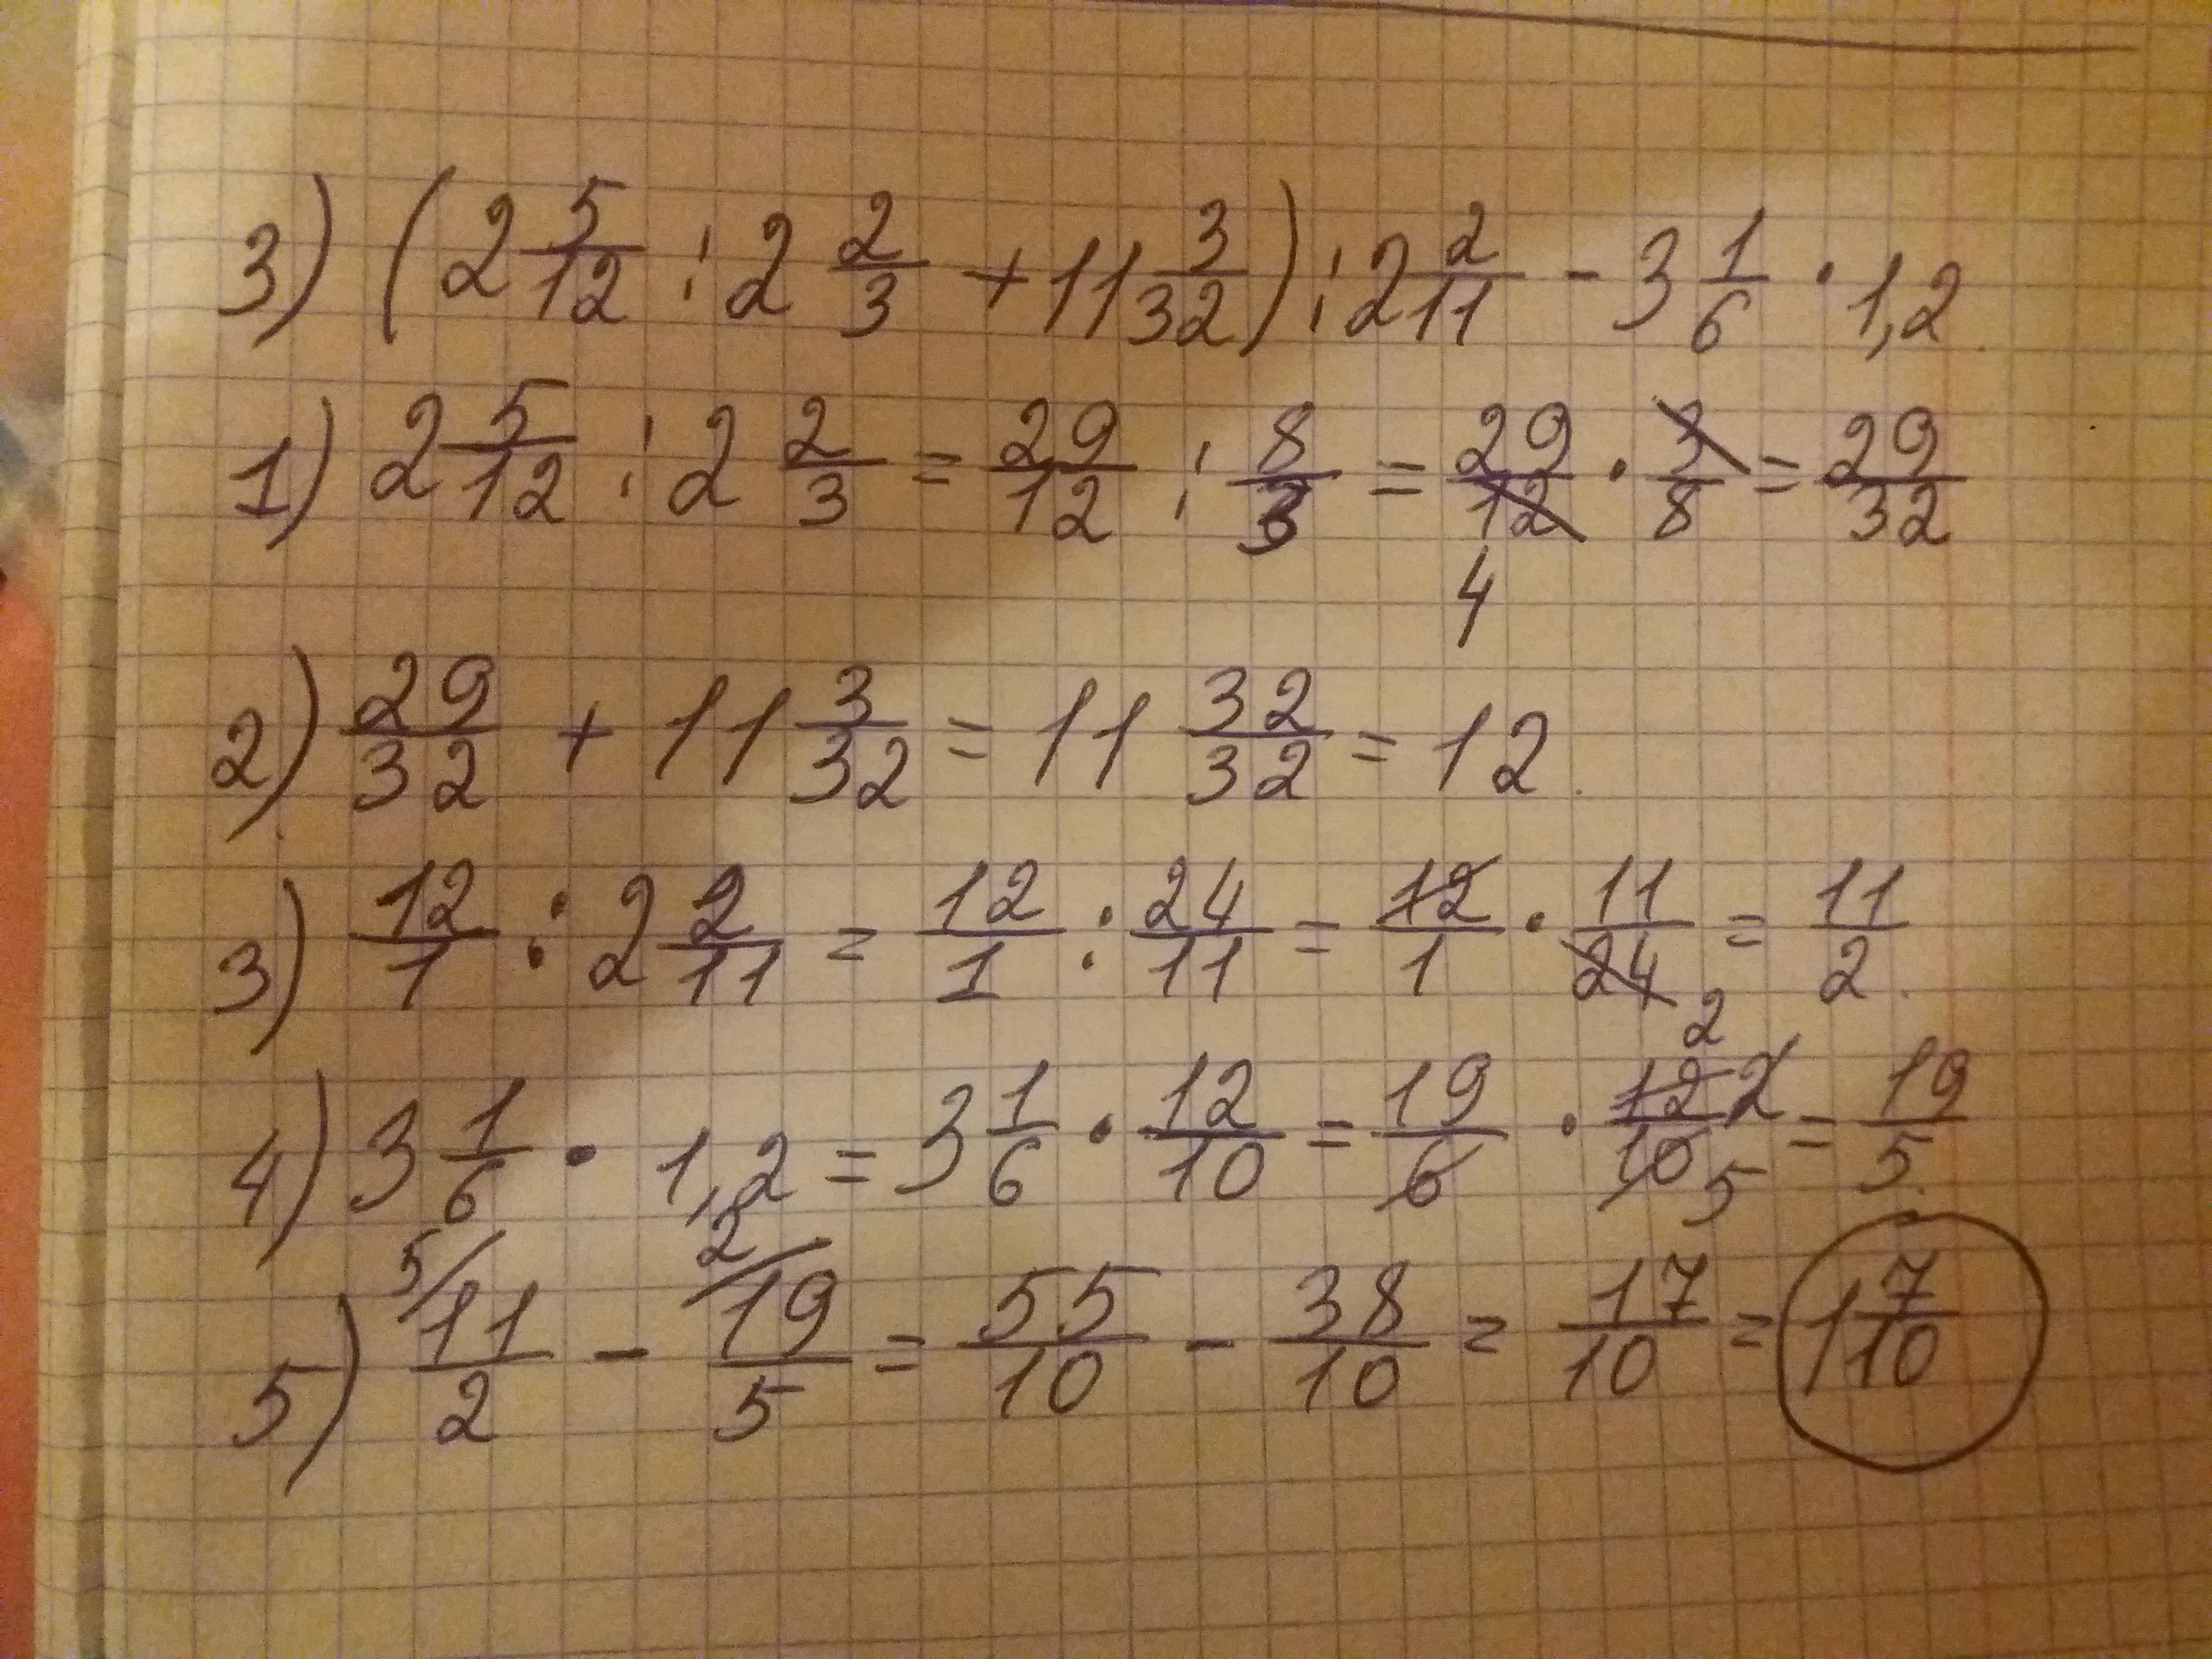 3) (2 5/12 : 2 2/3 + 11 3/32) : 2 2/11 - 3 1/6 · 1,2
1) 2 5/12 : 2 2/3 = 29/12 : 8/3 = 29/12 · 3/8 = 29/32
4
2) 29/32 + 11 3/32 = 11 32/32 = 12.
3) 12/1 : 2 2/11 = 12/1 : 24/11 = 12/1 · 11/24 = 11/2.
2
4) 3 1/6 · 1,2 = 3 1/6 · 12/10 = 19/6 · 12/10 2 5 = 19/5.
5 2
5) 11/2 - 19/5 = 55/10 - 38/10 = 17/10 = 1 7/10